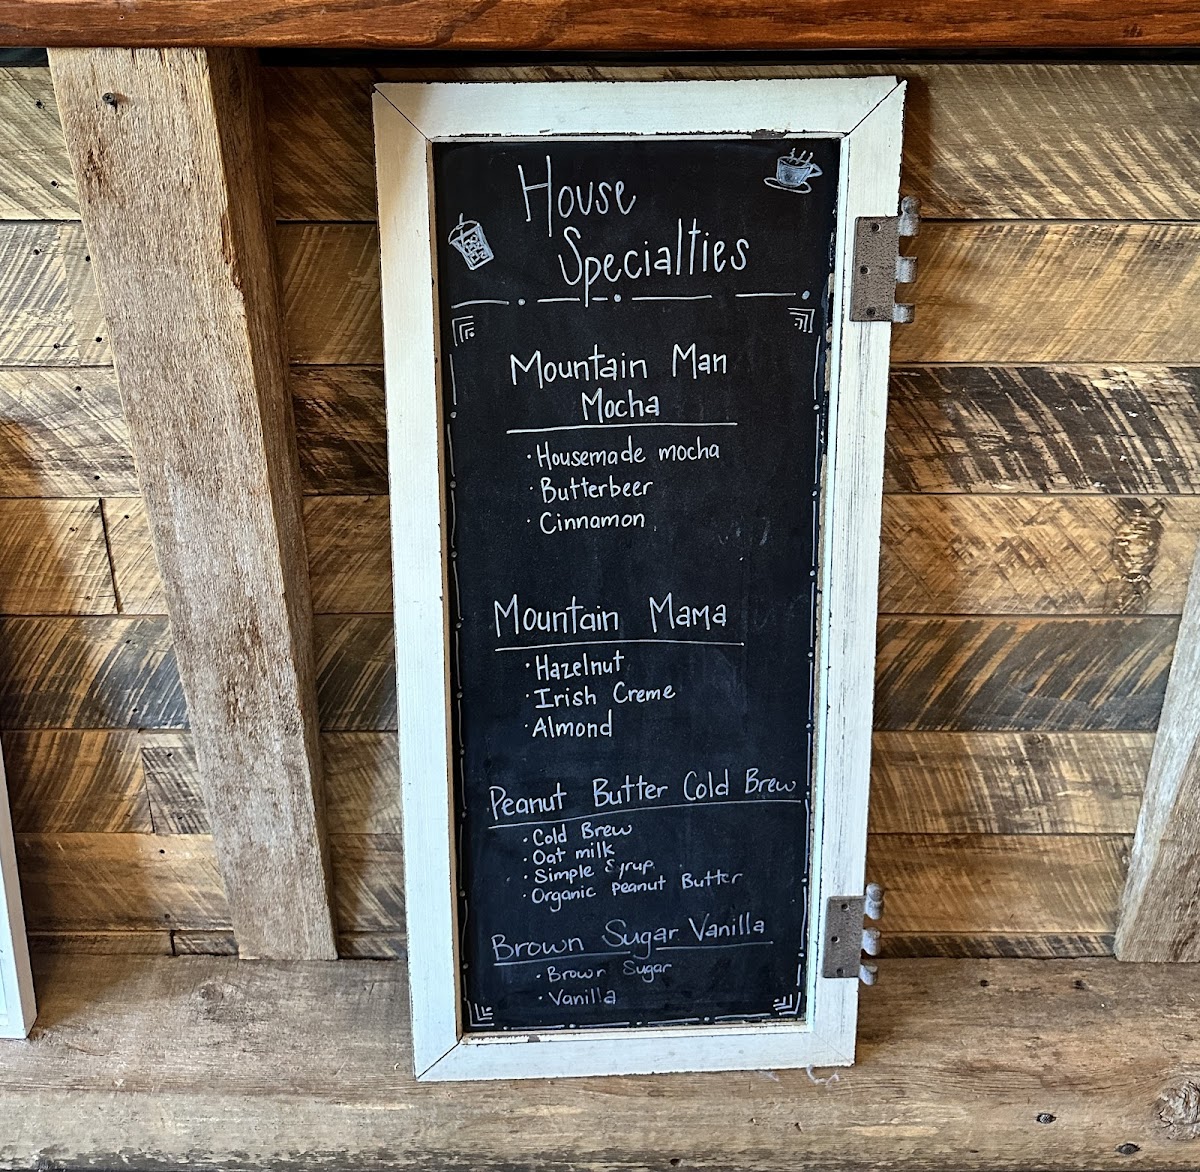 House
Specialties
Mountain Man
Mocha
· Housemade mocha
· Butterbeer
· Cinnamon
Mountain Mama
· Hazelnut
· Irish Creme
· Almond
Peanut Butter Cold Brew
· Cold Brew
· Oat milk
· Simple Syrup
· Organic peanut Butter
Brown Sugar Vanilla
· Brown Sugar
· Vanilla